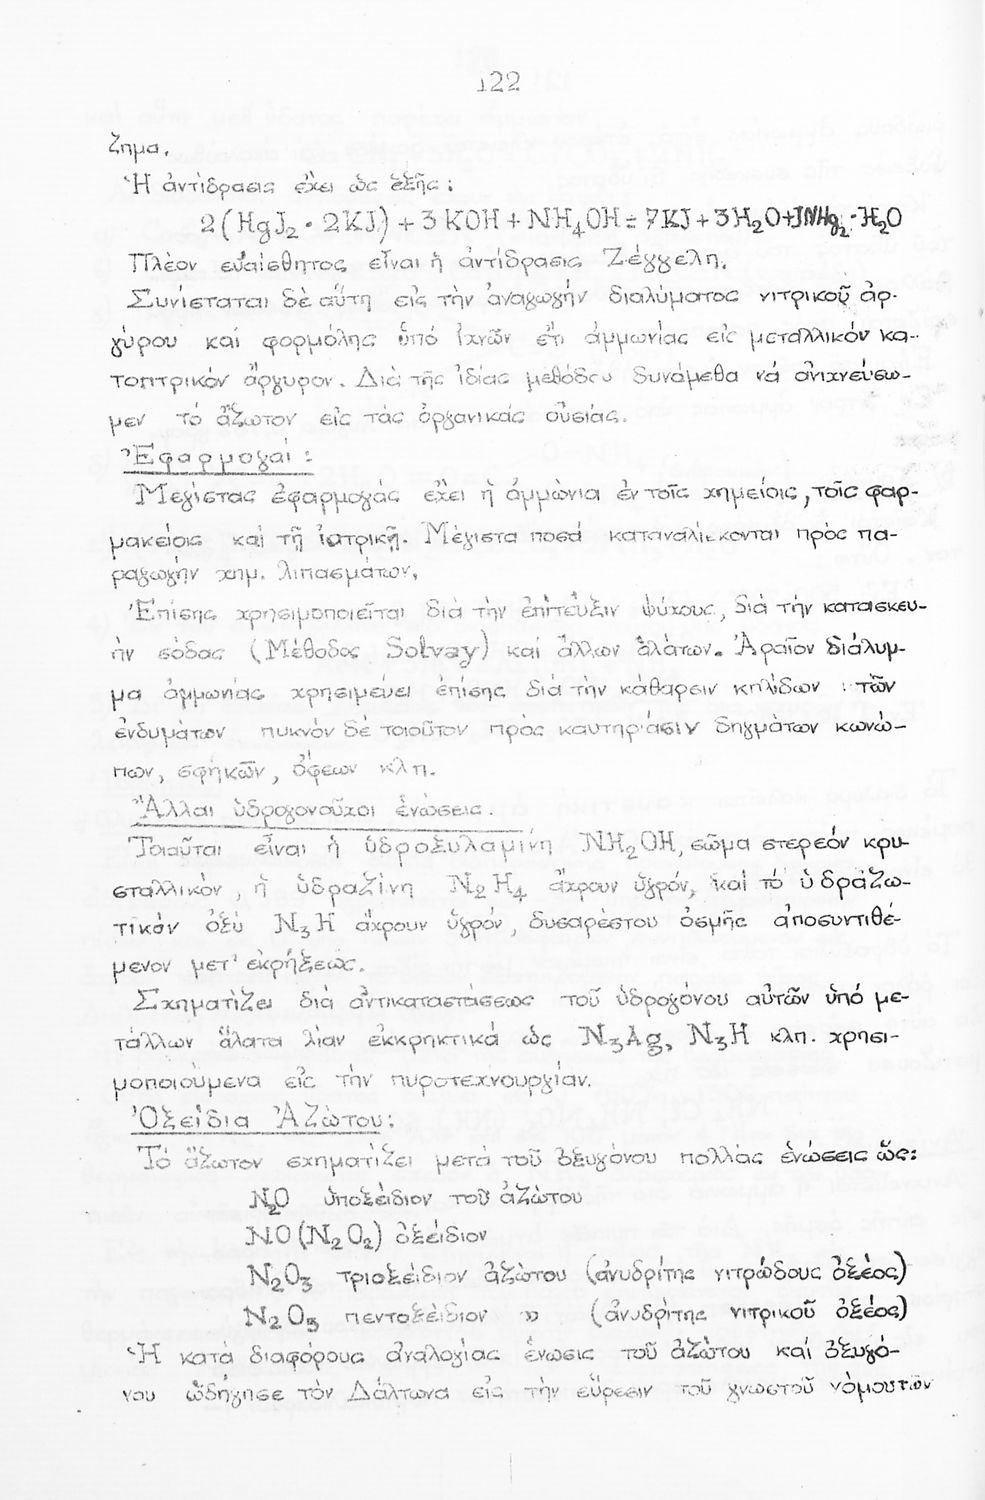 122
ζημα.
Ἡ ἀντίδρασις ἔχει ὡς ἑξῆς:
2(HgJ2 · 2KJ) + 3KOH + NH4OH = 7KJ + 3H2O + JNHg2 · H2O
Πλέον εὐαίσθητος εἶναι ἡ ἀντίδρασις Ζέγγελη.
Συνίσταται δὲ αὕτη εἰς τὴν ἀναγωγήν διαλύματος νιτρικοῦ ἀρ-
γύρου καί φορμόλης ὑπό ἰχνῶν ἔτι ἀμμωνίας εἰς μεταλλικόν κα-
τοπτρικόν ἄργυρον. Διά τῆς ἰδίας μεθόδου δυνάμεθα νά ἀνιχνεύσω-
μεν τό ἄζωτον εἰς τάς ὀργανικάς οὐσίας.
Ἐφαρμογαί:
Μεγίστας ἐφαρμογάς ἔχει ἡ ἀμμωνία ἐν τοῖς χημείοις, τοῖς φαρ-
μακείοις καί τῇ ἰατρικῇ. Μέγιστα ποσά καταναλίσκονται πρός πα-
ραγωγήν χημ. λιπασμάτων.
Ἐπίσης χρησιμοποιεῖται διά τήν ἐπίτευξιν ψύχους, διά τήν κατασκευ-
ήν σόδας (Μέθοδος Solvay) καί ἄλλων ἁλάτων. Ἀραῖον διάλυμ-
μα ἀμμωνίας χρησιμεύει ἐπίσης διά τήν κάθαρσιν κηλίδων τῶν
ἐνδυμάτων πυκνόν δέ τοιοῦτον πρός καυτηρίασιν δηγμάτων κωνώ-
πων, σφηκῶν, ὄφεων κλπ.
Ἄλλαι ὑδρογονοῦχοι ἑνώσεις.
Τοιαῦται εἶναι ἡ ὑδροξυλαμίνη NH2OH, σῶμα στερεόν κρυ-
σταλλικόν, ἡ ὑδραζίνη N2H4 ἄχρουν ὑγρόν, καί τό ὑδραζω-
τικόν ὀξύ N3H ἄχρουν ὑγρόν, δυσαρέστου ὀσμῆς ἀποσυντιθέ-
μενον μετ' ἐκρήξεως.
Σχηματίζει διά ἀντικαταστάσεως τοῦ ὑδρογόνου αὐτῶν ὑπό με-
τάλλων ἅλατα λίαν ἐκκρηκτικά ὡς N3Ag, N3H κλπ. χρησι-
μοποιούμενα εἰς τήν πυροτεχνουργίαν.
Ὀξείδια Ἀζώτου:
Τό ἄζωτον σχηματίζει μετά τοῦ ὀξυγόνου πολλάς ἑνώσεις ὥς:
N2O ὑποξείδιον τοῦ ἀζώτου
NO(N2O2) ὀξείδιον
N2O3 τριοξείδιον ἀζώτου (ἀνυδρίτης νιτρώδους ὀξέος)
N2O5 πεντοξείδιον » (ἀνυδρίτης νιτρικοῦ ὀξέος)
Ἡ κατά διαφόρους ἀναλογίας ἕνωσις τοῦ ἀζώτου καί ὀξυγό-
νου ὡδήγησε τόν Δάλτωνα εἰς τήν εὕρεσιν τοῦ γνωστοῦ νόμου τῶν